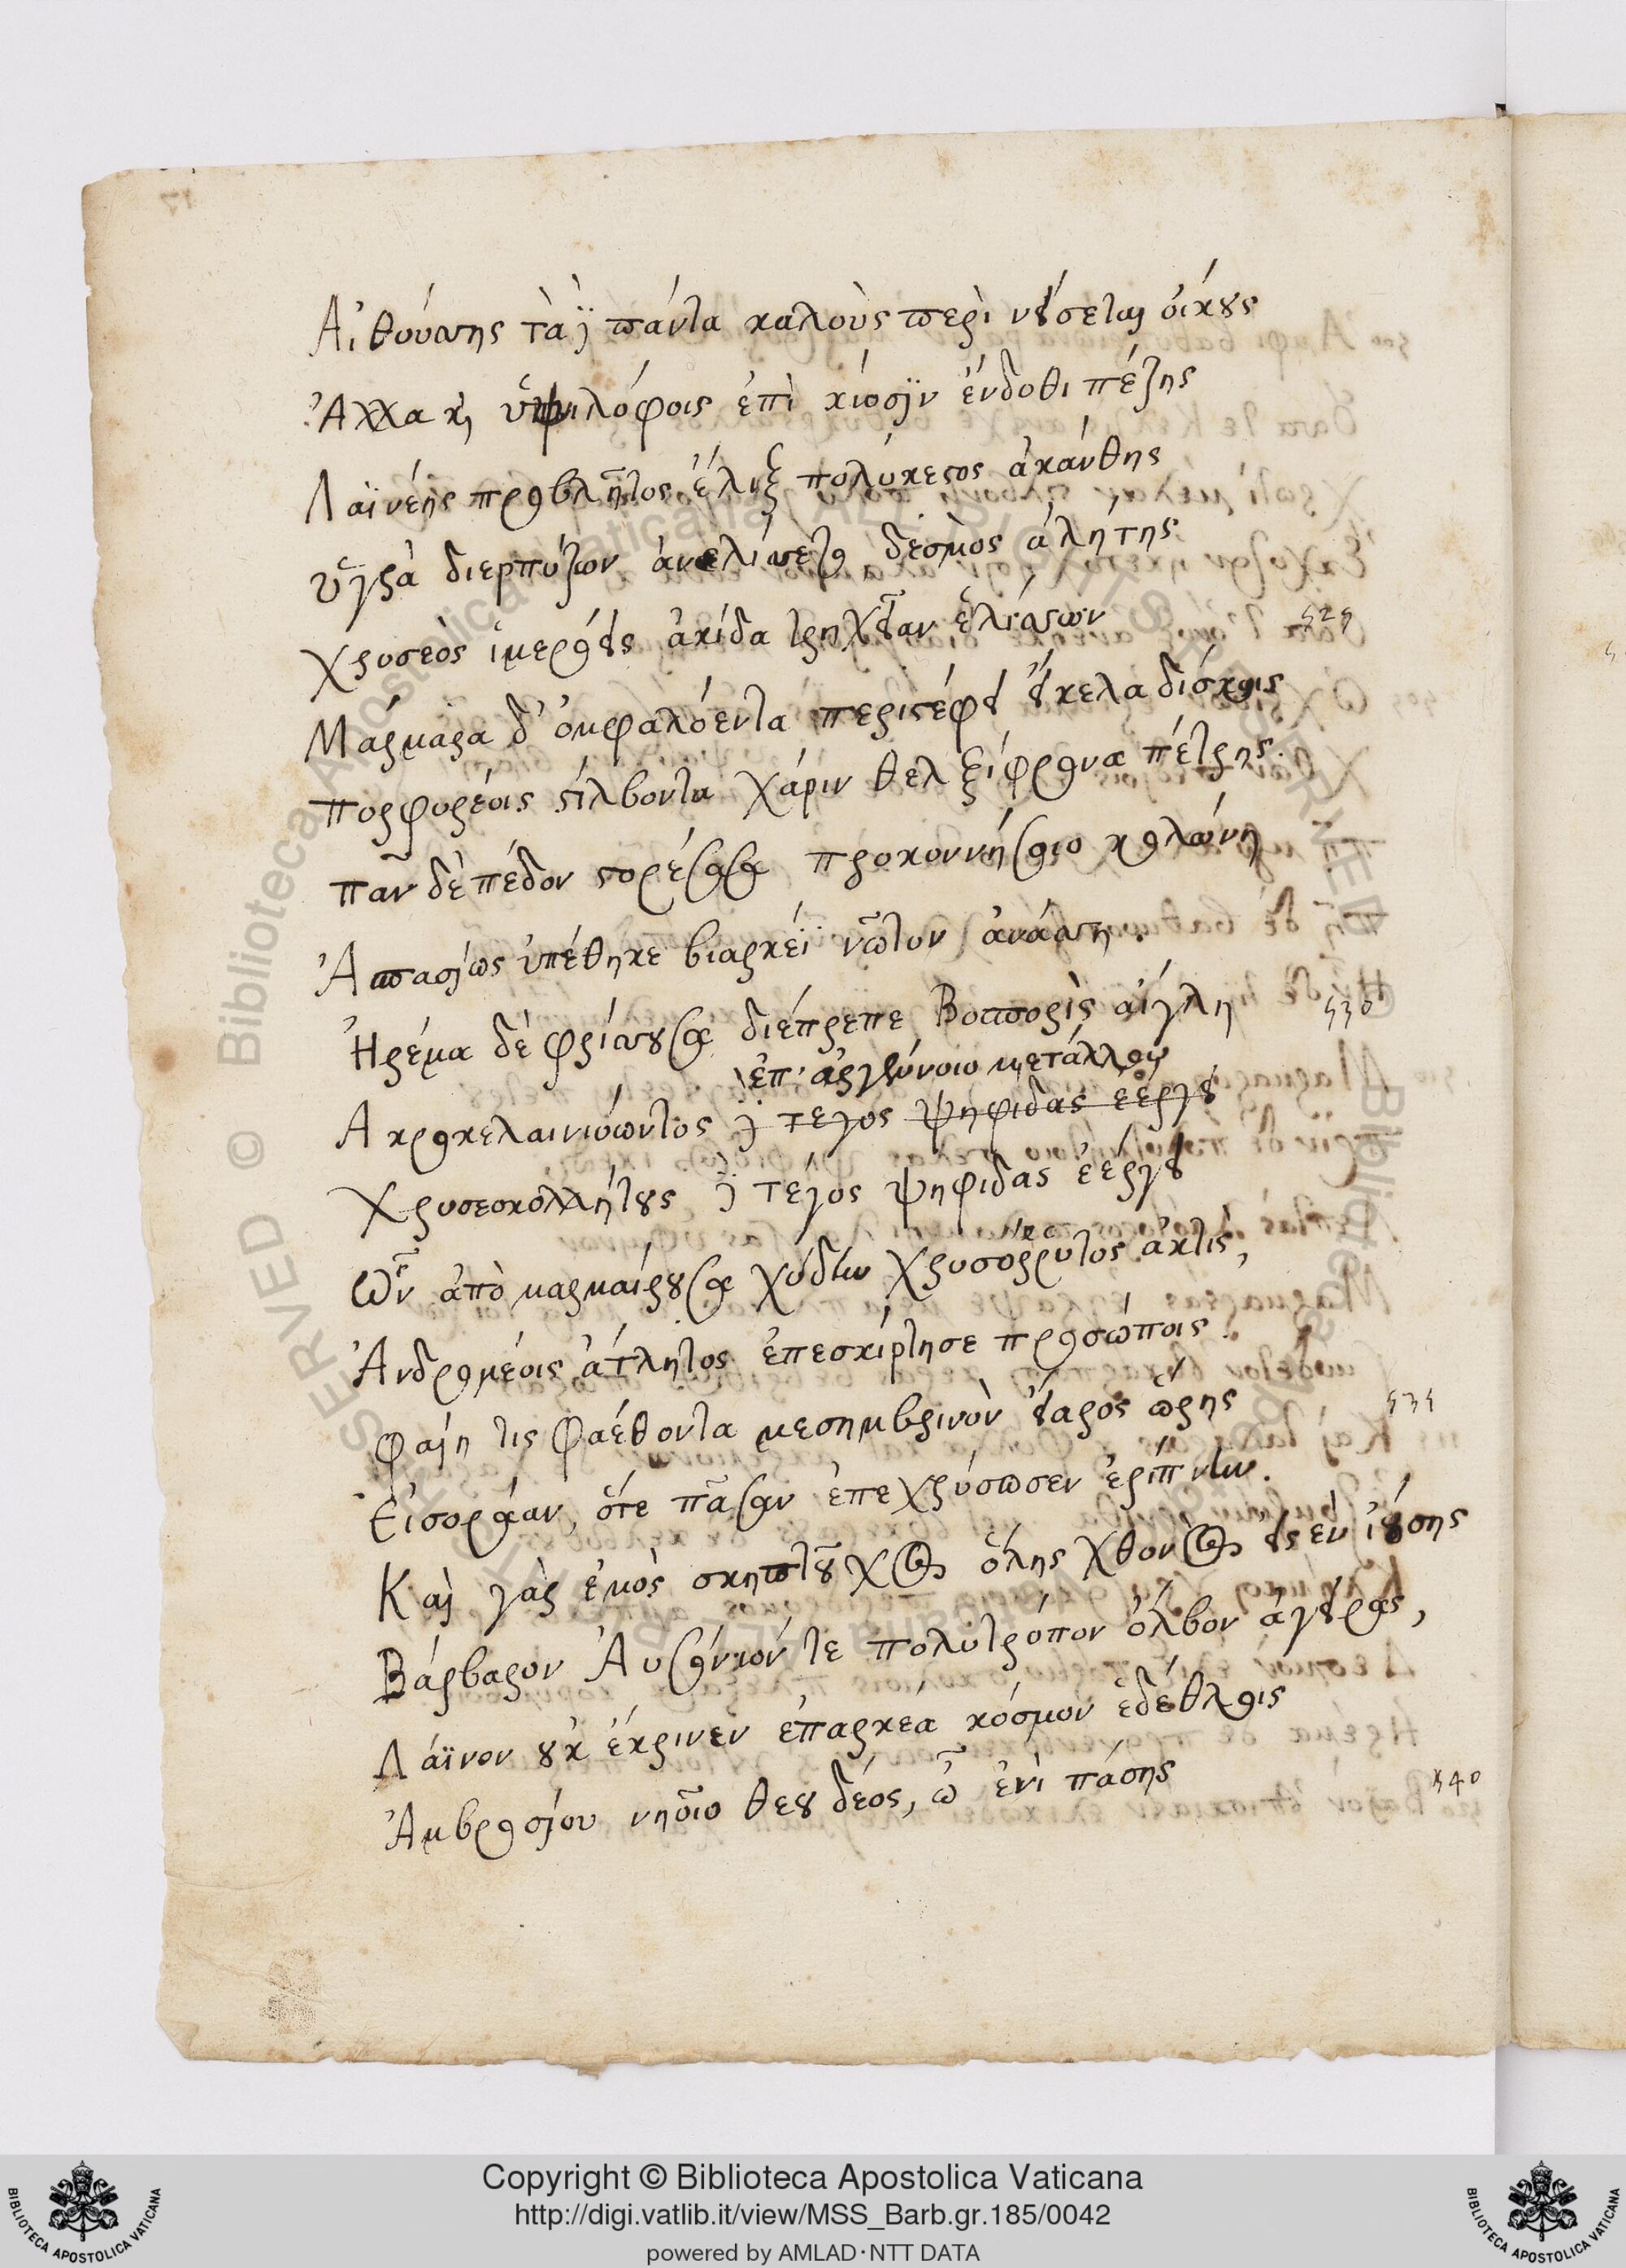 Αἰθούσης τὰ δὲ πάντα καλοὺς περὶ νείσεται οἴκους
Ἀλλὰ καὶ ὑψιλόφοις ἐπὶ κίοσιν ἔνδοθι πέζης
Λαϊνέης προβλῆτος ἕλιξ πολύκεστος ἀκάνθης
ὑγρὰ διερπύζων ἀνελίσσετο δεσμὸς ἀλήτης
χρυσεὸς ἱμερόεις ἀκίδα τρηχεῖαν ἑλίσσων 525
Μάρμαρα δ' ὀμφαλόεντα περιστέφει εἴκελα δίσκοις
πορφυρέοις στίλβοντα χάριν θελξίφρονα πέτρης.
πᾶν δὲ πέδον στορέσασα προκοννήσοιο κολώνη
Ἀσπασίως ὑπέθηκε βιαρκέϊ νῶτον ἀνάσσῃ.
Ἠρέμα δὲ φρίσσουσα διέπρεπε Βοσπορὶς αἴγλη 530
ἐπ' ἀργεννοῖο μετάλλου
Ἀκροκελαινιόωντος δὲ τέγος ψηφῖδας ἐέργει
Χρυσεοκολλήτους δὲ τέγος ψηφῖδας ἐέργει
Ὧν ἀπὸ μαρμαίρουσα χύδην χρυσόῤῥυτος ἀκτὶς,
Ἀνδρομέοις ἄτλητος ἐπεσκίρτησε προσώποις.
Φαίη τις Φαέθοντα μεσημβρινὸν εἴαρος ὥρης 535
Εἰσοράαν, ὅτε πᾶσαν ἐπεχρύσωσεν ἐρίπνην.
Καὶ γὰρ ἐμὸς σκηπτοῦχος ὅλης χθονὸς εἰς ἓν ἰούσης
Βάρβαρον Αὐσόνιόν τε πολύτροπον ὄλβον ἀγείρας,
Λάϊνον οὐκ ἔκρινεν ἐπαρκέα κόσμον ἐδέθλοις
Ἀμβροσίου νηοῖο θεουδέος, ᾧ ἐνὶ πάσης 540
Copyright © Biblioteca Apostolica Vaticana
http://digi.vatlib.it/view/MSS_Barb.gr.185/0042
powered by AMLAD·NTT DATA